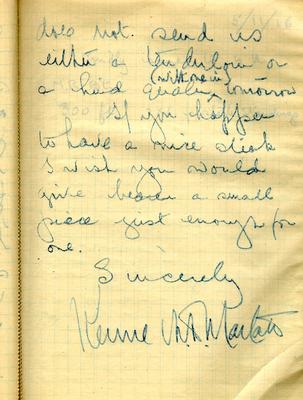 does not send us
either a tenderloin or
a third quality tomorrow
If you happen
to have a nice steak
I wish you would
give bearer a small
piece just enough for
one.
Sincerely